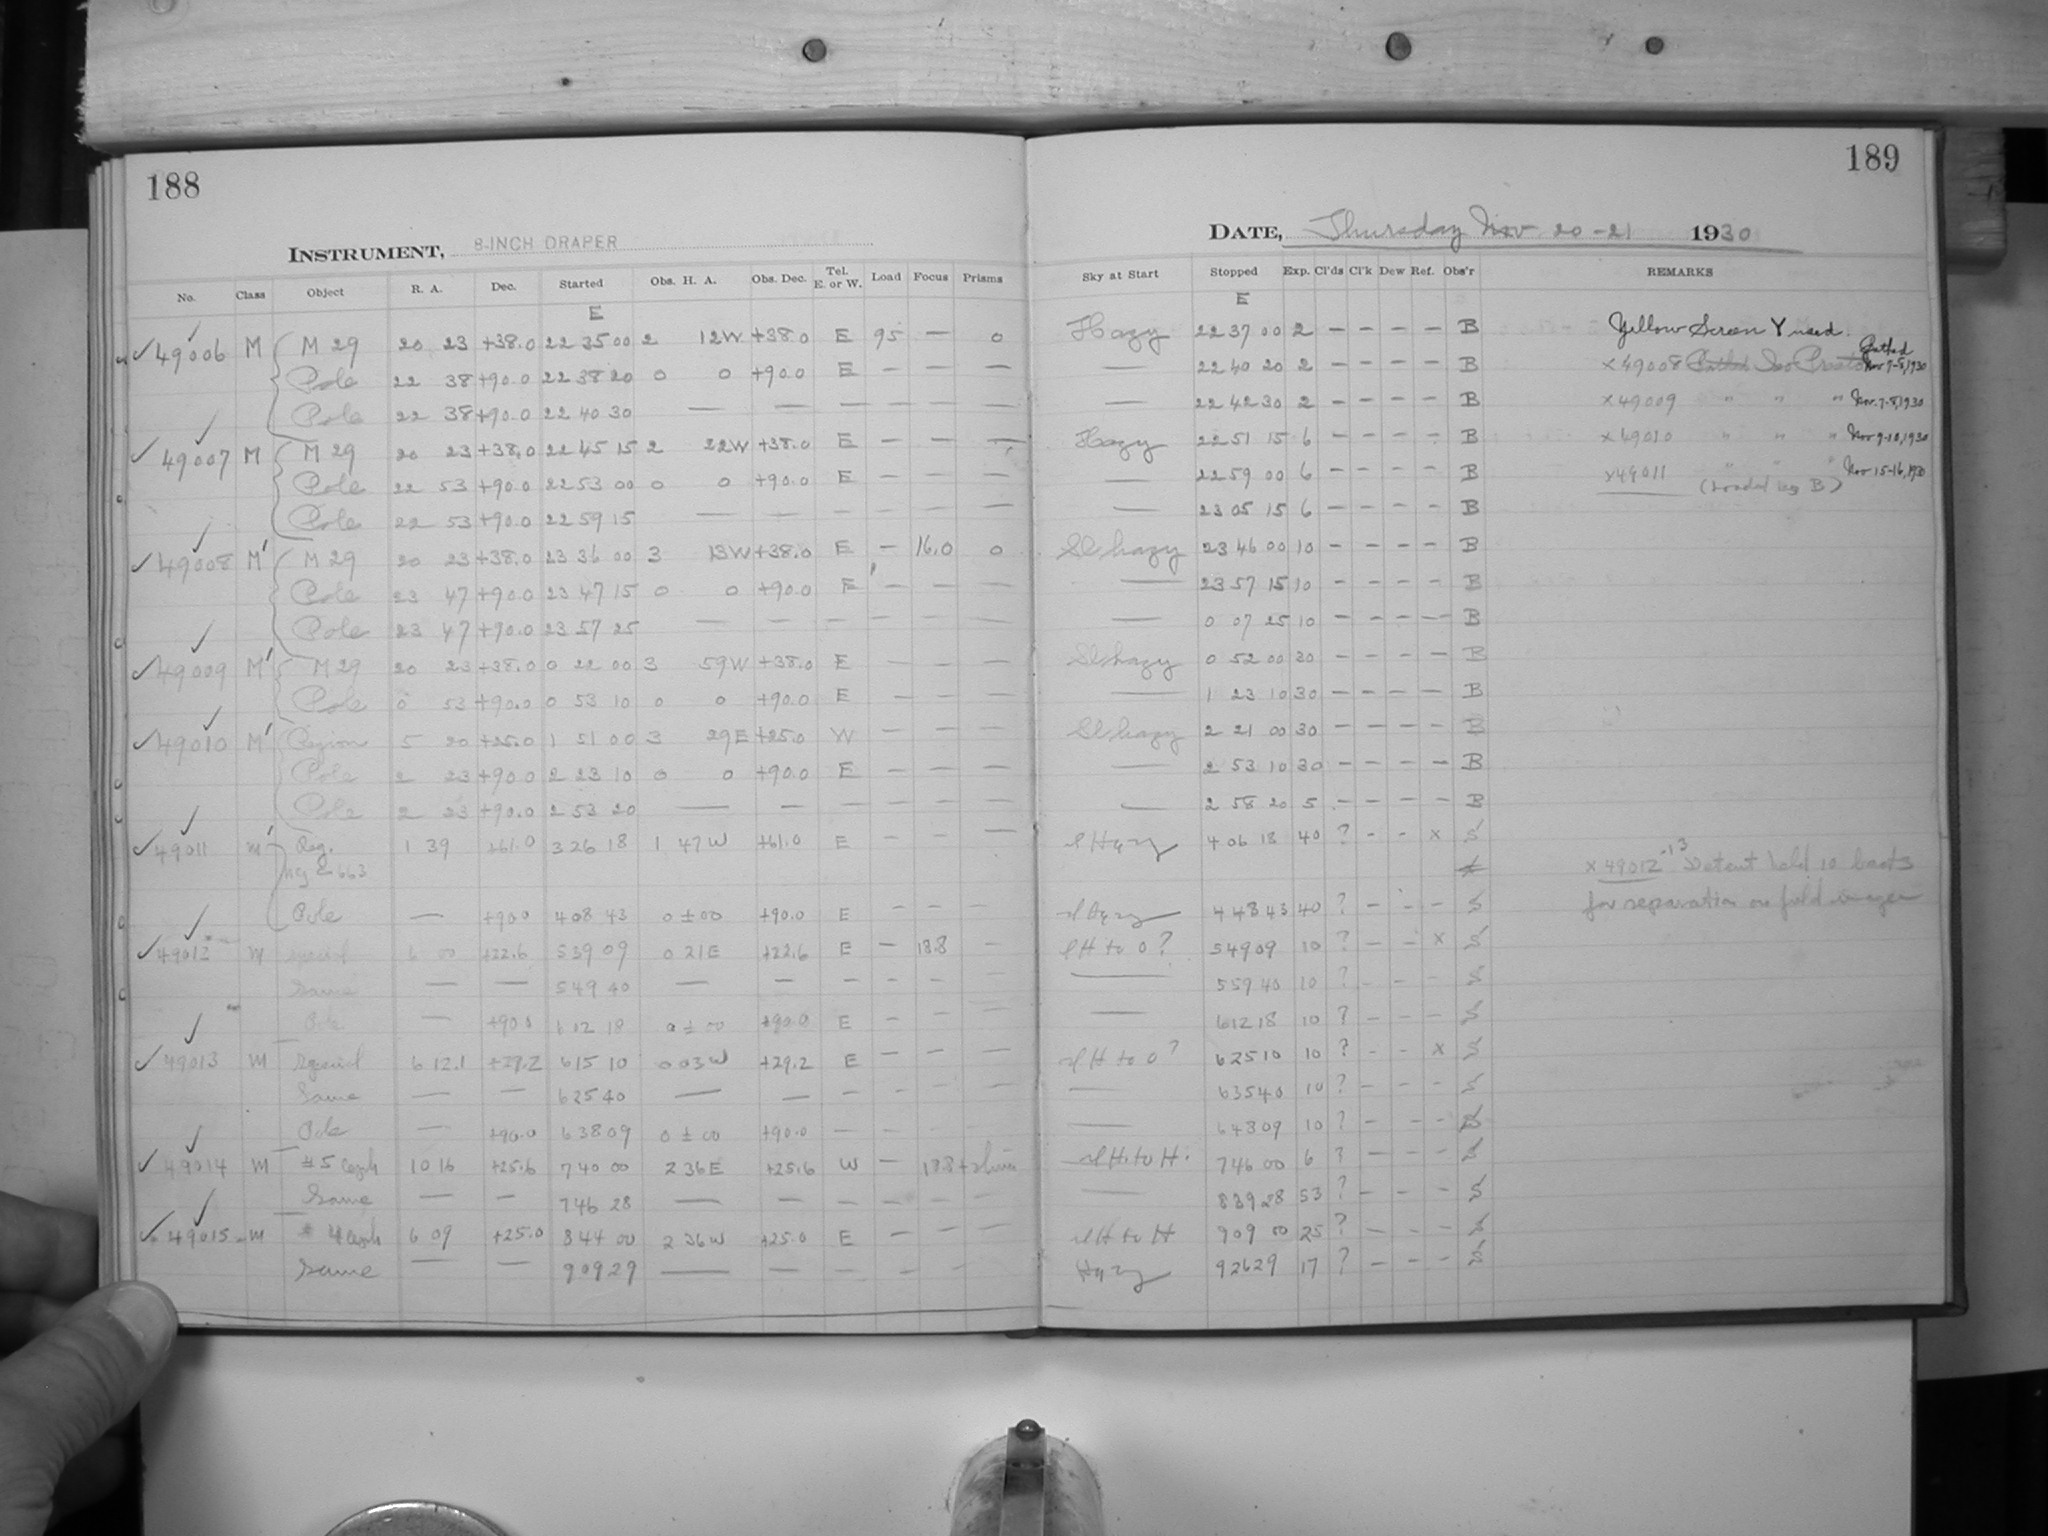 188
INSTRUMENT, 8-INCH DRAPER
No. Class Object R. A. Dec. Started Obs. H. A. Obs. Dec. Tel. E. or W. Load Focus Prisms
E
49006 M M 29 20 23 +38.0 22 35 00 2 12W +38.0 E 95 — 0
Pole 22 38 +90.0 22 38 20 0 0 +90.0 E — — —
Pole 22 38 +90.0 22 40 30 — — — — — —
49007 M M 29 20 23 +38.0 22 45 15 2 22W +38.0 E — — —
Pole 22 53 +90.0 22 53 00 0 0 +90.0 E — — —
Pole 22 53 +90.0 22 59 15 — — — — — —
49008 M' M 29 20 23 +38.0 23 36 00 3 13W +38.0 E — 16.0 0
Pole 23 47 +90.0 23 47 15 0 0 +90.0 E — — —
Pole 23 47 +90.0 23 57 25 — — — — — —
49009 M' M 29 20 23 +38.0 0 22 00 3 59W +38.0 E — — —
Pole 0 53 +90.0 0 53 10 0 0 +90.0 E — — —
49010 M' Region 5 20 +25.0 1 51 00 3 29E +25.0 W — — —
Pole 2 23 +90.0 2 23 10 0 0 +90.0 E — — —
Pole 2 23 +90.0 2 53 20 — — — — — —
49011 m' Reg. 1 39 +61.0 3 26 18 1 47W +61.0 E — — —
663
Pole — +90.0 4 08 43 0 ± 00 +90.0 E — — —
49012 m special 6 00 +22.6 5 39 09 0 21E +22.6 E — 18.8 —
Same — — 5 49 40 — — — — — —
Pole — +90.0 6 12 18 0 ± 00 +90.0 E — — —
49013 m special 6 12.1 +29.2 6 15 10 0 03W +29.2 E — — —
Same — — 6 25 40 — — — — — —
Pole — +90.0 6 38 09 0 ± 00 +90.0 — — —
49014 m #5 ceph 10 16 +25.6 7 40 00 2 36E +25.6 W —
Same — — 7 46 28 — — — — — —
49015 m # 4 ceph 6 09 +25.0 8 44 00 2 36W +25.0 E — — —
Same — — 9 09 29 — — — — — —
189
DATE, Thursday Nov 20-21 1930
Sky at Start Stopped Exp. Cl'ds Cl'k Dew Ref. Obs'r REMARKS
E
Hazy 22 37 00 2 — — — — B Yellow Screen Y used.
— 22 40 20 2 — — — — B x49008 Bathed Nov 7-8, 1930
— 22 42 30 2 — — — — B x49009 " " " Nov. 7-8, 1930
Hazy 22 51 15 6 — — — — B x49010 " " " Nov 9-10, 1930
— 22 59 00 6 — — — — B x49011 " " " Nov 15-16, 1930
(Loaded by B)
— 23 05 15 6 — — — — B
Sl hazy 23 46 00 10 — — — — B
— 23 57 15 10 — — — — B
— 0 07 25 10 — — — — B
Sl hazy 0 52 00 30 — — — — B
— 1 23 10 30 — — — — B
Sl hazy 2 21 00 30 — — — — B
— 2 53 10 30 — — — — B
— 2 58 20 5 — — — — B
sl Hazy 4 06 18 40 ? - - x S
x 49012-13 Detent held 10 beats
for separation on field images
sl Hazy 4 48 43 40 ? - - - S
sl H to 0? 5 49 09 10 ? - - x S
— 5 59 40 10 ? - - - S
— 6 12 18 10 ? - - - S
sl H to 0? 6 25 10 10 ? - - x S
— 6 35 40 10 ? - - - S
— 6 48 09 10 ? - - - S
sl H. to H. 7 46 00 6 ? - - - S
— 8 39 28 53 ? - - - S
sl H to H 9 09 00 25 ? - - - S
Hazy 9 26 29 17 ? - - - S